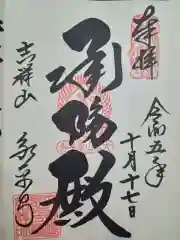 奉拝
令和五年
十月十七日
承陽殿
吉祥山
永平寺